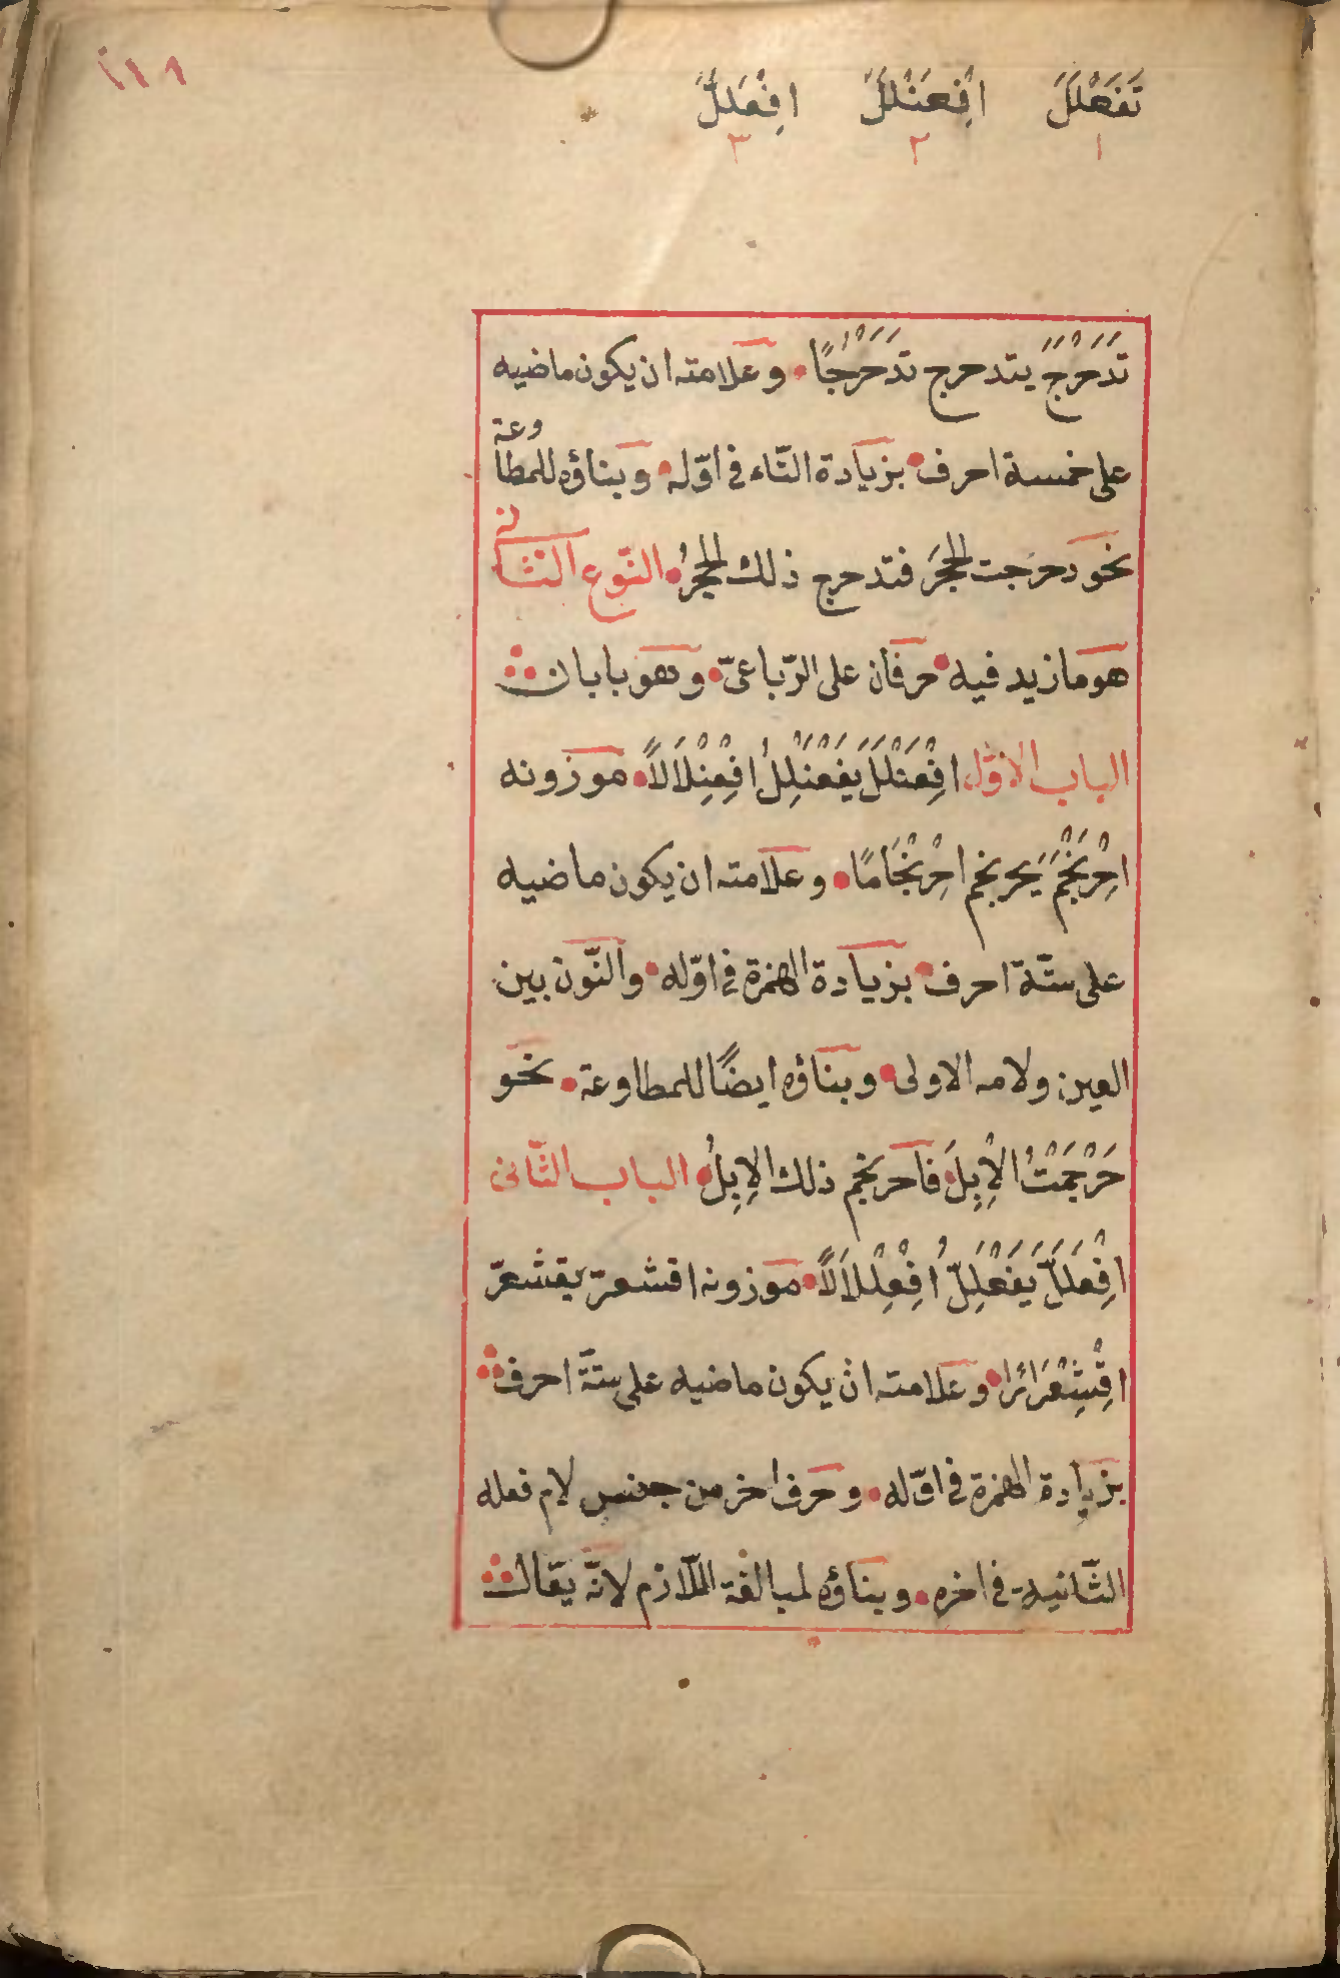 تَفَعْلَلَ افْعَنْلَلَ افْعَلَلَّ
١ ٢ ٣
تَدَحْرَجَ يتدحرج تَدَحْرُجًا وعلامته ان يكون ماضيه
على خمسة احرف بزيادة التّاء فى اوّله وبناؤه للمطاوعة
نحو دحرجت الحجرَ فتدحرج ذلك الحجرُ النّوع الثانى
هو ما زيد فيه حرفان على الرّباعىّ وهو بابان
الباب الاوّل اِفْعَنْلَلَ يَفْعَنْلِلُ اِفْعِنْلَالًا موزونه
اِحْرَنْجَمَ يَحْرنجم اِحْرِنْجَامًا وعلامته ان يكون ماضيه
على ستّة احرف بزيادة الهمزة فى اوّله والنّون بين
العين ولامه الاولى وبناؤه ايضًا للمطاوعة نحو
حَرْجَمْتُ الْاِبِلَ فاحرنجم ذلك الاِبِلُ الباب الثّانى
اِفْعَلَلَّ يَفْعَلِلُّ اِفْعِلْلَالًا موزونه اقشعرّ يقشعرّ
اِقْشِعْرَارًا وعلامته ان يكون ماضيه على ستّة احرف
بزيادة الهمزة فى اوّله وحرف اخر من جنس لام فعله
الثّانية فى اخره وبناؤه لمبالغة اللّازم لانّه يقال